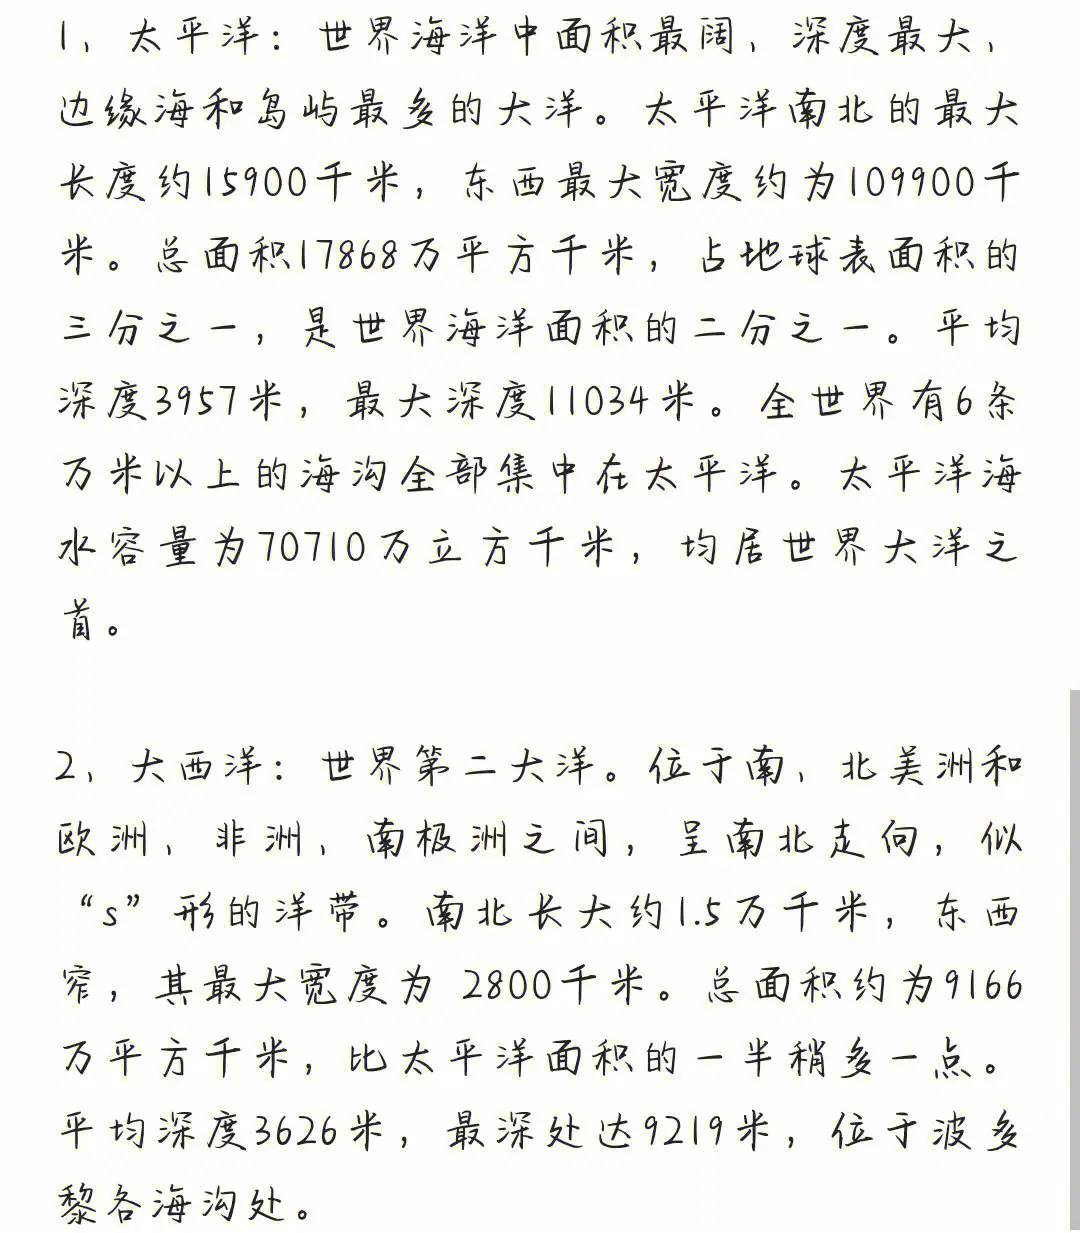 1、太平洋：世界海洋中面积最阔、深度最大、
边缘海和岛屿最多的大洋。太平洋南北的最大
长度约15900千米，东西最大宽度约为109900千
米。总面积17868万平方千米，占地球表面积的
三分之一，是世界海洋面积的二分之一。平均
深度3957米，最大深度11034米。全世界有6条
万米以上的海沟全部集中在太平洋。太平洋海
水容量为70710万立方千米，均居世界大洋之
首。
2、大西洋：世界第二大洋。位于南、北美洲和
欧洲、非洲、南极洲之间，呈南北走向，似
“s”形的洋带。南北长大约1.5万千米，东西
窄，其最大宽度为 2800千米。总面积约为9166
万平方千米，比太平洋面积的一半稍多一点。
平均深度3626米，最深处达9219米，位于波多
黎各海沟处。